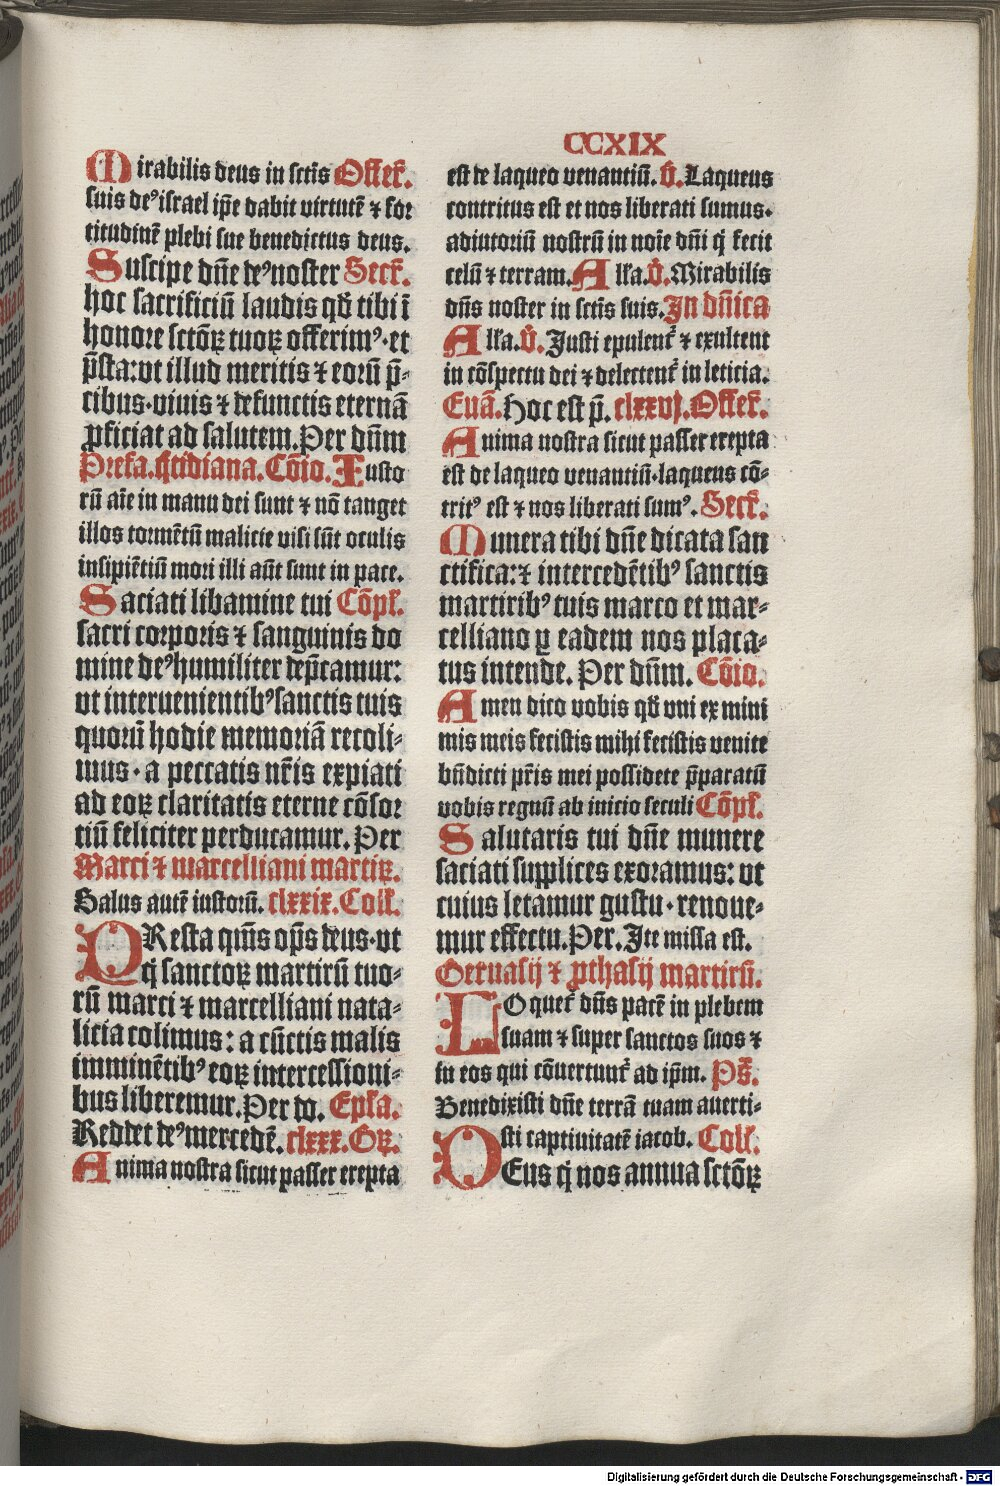 CCXIX
Mirabilis deus in sctīs Offer̄.
suis de⁹ israel ip̄e dabit virtutē ⁊ for
titudinē plebi sue benedictus deus.
Suscipe dn̄e de⁹ noster Secr̄.
hoc sacrificiū laudis qd̄ tibi ī
honore sctōꝝ tuoꝝ offerim⁹·et
p̄sta:vt illud meritis ⁊ eorū p̄⸗
cibus·viuis ⁊ defunctis eternā
ꝓficiat ad salutem. Per dn̄m
Prefa. q̄tidiana. Cōio. Iusto
rū aīe in manu dei sunt ⁊ nō tanget
illos tormētū malicie visi sūt oculis
insipiētiū mori illi aūt sunt in pace.
Saciati libamine tui Cōpl̄.
sacri corporis ⁊ sanguinis do
mine de⁹ humiliter dep̄camur:
vt interuenientib⁹ sanctis tuis
quorū hodie memoriā recoli⸗
mus·a peccatis nr̄is expiati
ad eoꝝ claritatis eterne cōsor
tiū feliciter perducamur. Per
Marci ⁊ marcelliani martiꝝ.
Salus autē iustorū. clxxix. Coll̄.
PResta qm̄s op̄s deus·vt
q̄ sanctoꝝ martirū tuo⸗
rū marci ⁊ marcelliani nata⸗
licia colimus: a cūctis malis
imminētib⁹ eoꝝ intercessioni⸗
bus liberemur. Per dō. Epl̄a.
Reddet de⁹ mercedē. clxxx. Gꝝ.
Anima nostra sicut passer erepta
est de laqueo venantiū. V̄. Laqueus
contritus est et nos liberati sumus.
adiutoriū nostrū in noīe dn̄i q̄ fecit
celū ⁊ terram. All̄a. V̄. Mirabilis
dn̄s noster in sctīs suis. In dn̄ica
All̄a. V̄. Justi epulent᷑ ⁊ exultent
in cōspectu dei ⁊ delectent᷑ in leticia.
Euā. Hoc est p̄. clxxvj. Offer̄.
Anima nostra sicut passer erepta
est de laqueo venantiū·laqueus cō⸗
trit⁹ est ⁊ nos liberati sum⁹. Secr̄.
Munera tibi dn̄e dicata san
ctifica:⁊ intercedētib⁹ sanctis
martirib⁹ tuis marco et mar⸗
celliano ꝑ eadem nos placa⸗
tus intende. Per dn̄m. Cōio.
Amen dico vobis qd̄ vni ex mini
mis meis fecistis mihi fecistis venite
bn̄dicti pr̄is mei possidete p̄paratū
vobis regnū ab inicio seculi Cōpl̄.
Salutaris tui dn̄e munere
saciati supplices exoramus: vt
cuius letamur gustu·renoue⸗
mur effectu. Per. Ite missa est.
Geruasij ⁊ ꝓthasij martirū.
LOquet᷑ dn̄s pacē in plebem
suam ⁊ super sanctos suos ⁊
in eos qui cōuertunt᷑ ad ip̄m. Ps̄.
Benedixisti dn̄e terrā tuam auerti⸗
sti captiuitatē iacob. Coll̄.
DEus q̄ nos annua sctōꝝ
Digitalisierung gefördert durch die Deutsche Forschungsgemeinschaft - DFG